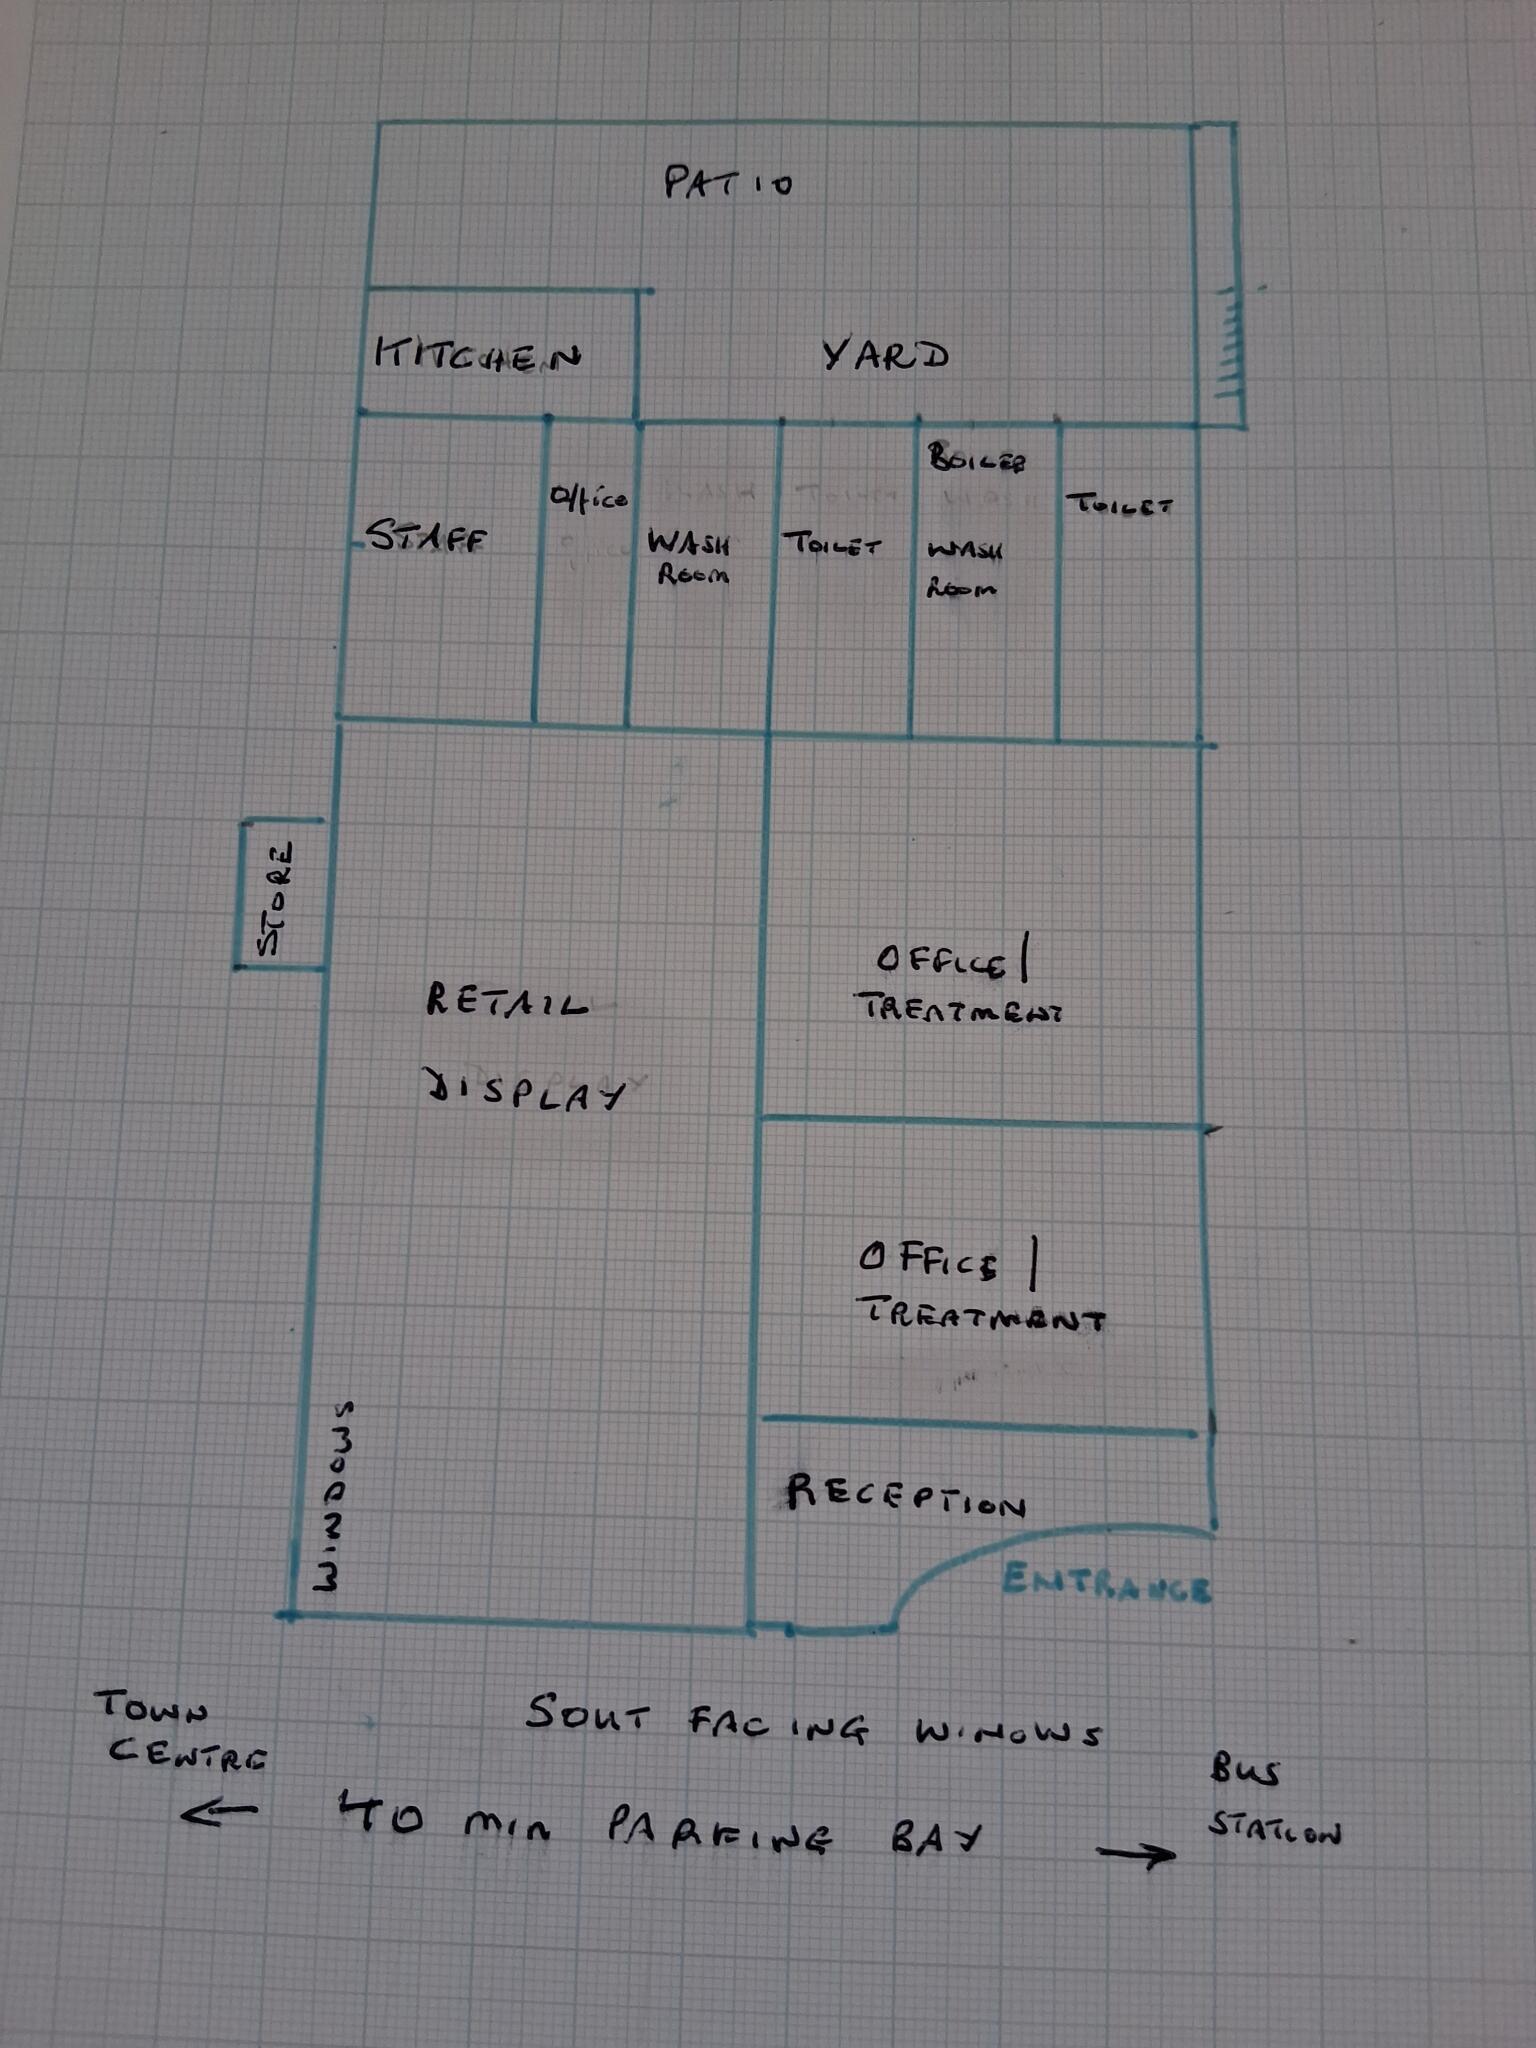 PATIO
KITCHEN
YARD
STAFF
Office
WASH
ROOM
TOILET
BOILER
WASH
ROOM
TOILET
STORE
RETAIL
DISPLAY
OFFICE/
TREATMENT
OFFICE/
TREATMENT
WINDOWS
RECEPTION
ENTRANCE
TOWN
CENTRE
SOUT FACING WINOWS
BUS
STATION
← 40 MIN PARKING BAY →